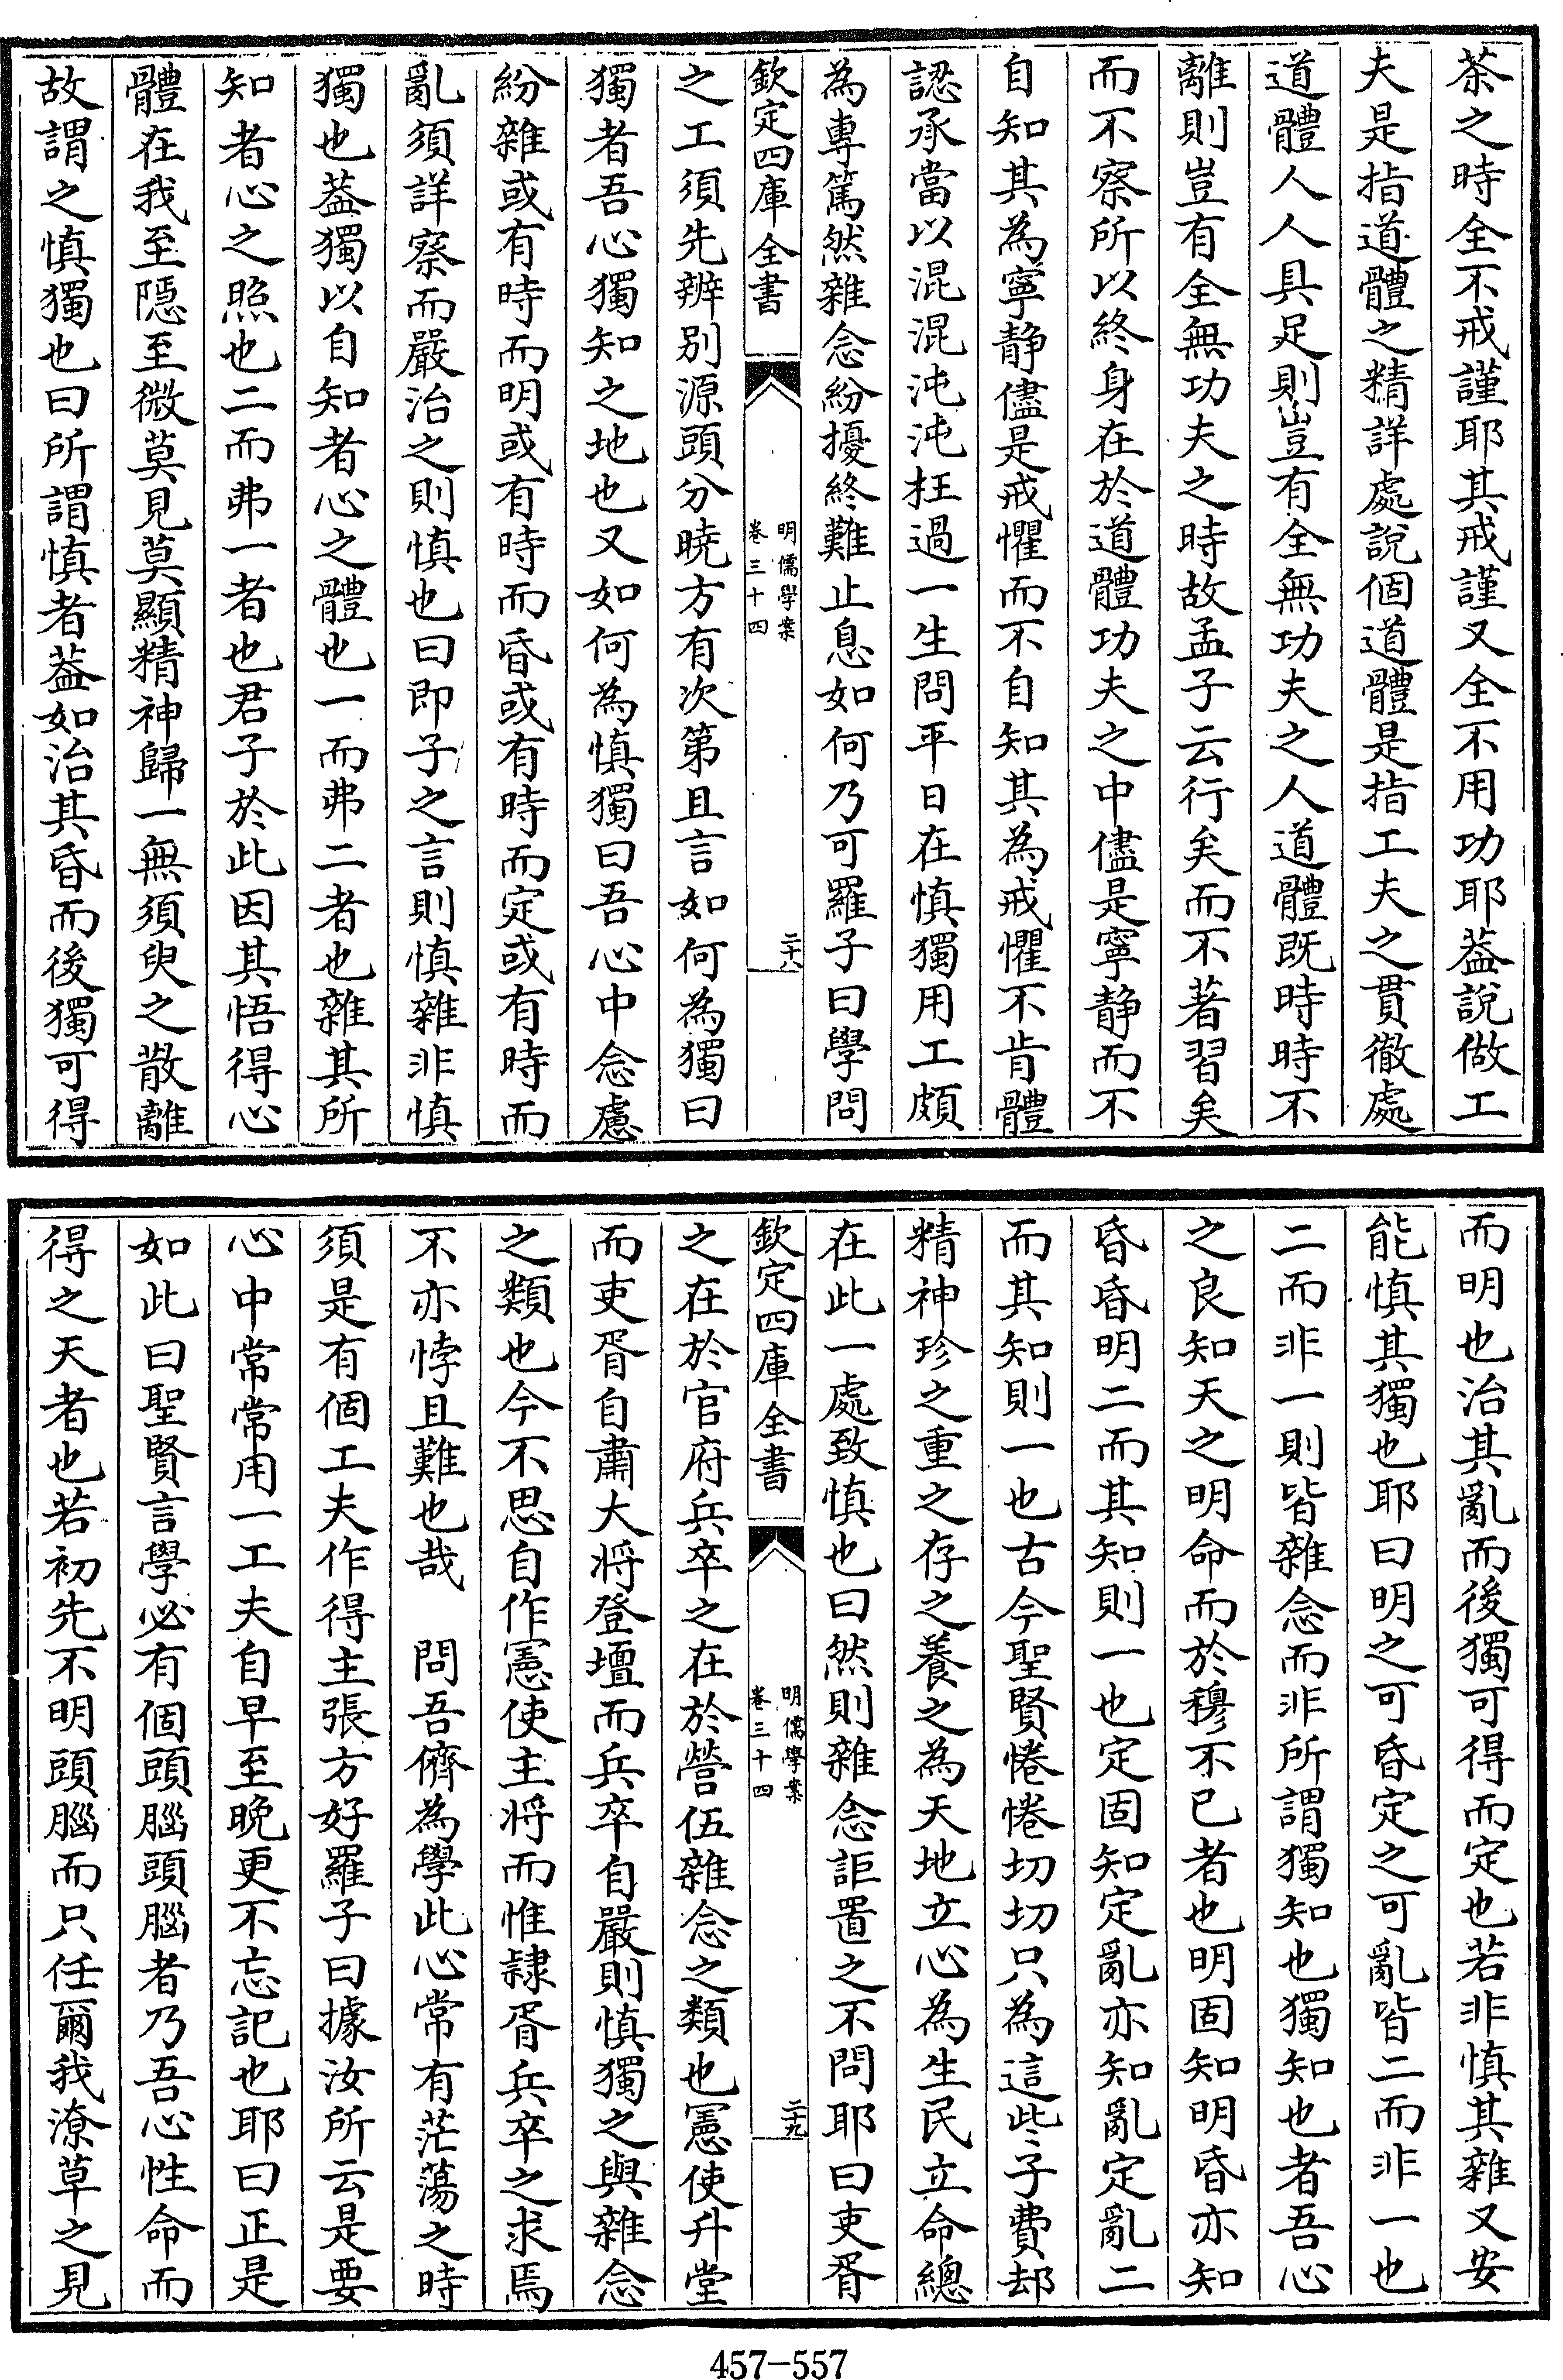 茶之時全不戒謹耶其戒謹又全不用功耶葢說做工
夫是指道體之精詳處說個道體是指工夫之貫徹處
道體人人具足則豈有全無功夫之人道體既時時不
離則豈有全無功夫之時故孟子云行矣而不著習矣
而不察所以終身在於道體功夫之中儘是寧静而不
自知其為寧静儘是戒懼而不自知其為戒懼不肯體
認承當以混混沌沌枉過一生問平日在慎獨用工頗
為專篤然雜念紛擾終難止息如何乃可羅子曰學問
欽定四庫全書
明儒學案
卷三十四
二十八
之工須先辨别源頭分曉方有次第且言如何為獨曰
獨者吾心獨知之地也又如何為慎獨曰吾心中念慮
紛雜或有時而明或有時而昏或有時而定或有時而
亂須詳察而嚴治之則慎也曰即子之言則慎雜非慎
獨也葢獨以自知者心之體也一而弗二者也雜其所
知者心之照也二而弗一者也君子於此因其悟得心
體在我至隱至微莫見莫顯精神歸一無須臾之散離
故謂之慎獨也曰所謂慎者葢如治其昏而後獨可得
而明也治其亂而後獨可得而定也若非慎其雜又安
能慎其獨也耶曰明之可昏定之可亂皆二而非一也
二而非一則皆雜念而非所謂獨知也獨知也者吾心
之良知天之明命而於穆不已者也明固知明昏亦知
昏昏明二而其知則一也定固知定亂亦知亂定亂二
而其知則一也古今聖賢惓惓切切只為這些子費却
精神珍之重之存之養之為天地立心為生民立命總
在此一處致慎也曰然則雜念詎置之不問耶曰吏胥
欽定四庫全書
明儒學案
卷三十四
二十九
之在於官府兵卒之在於營伍雜念之類也憲使升堂
而吏胥自肅大將登壇而兵卒自嚴則慎獨之與雜念
之類也今不思自作憲使主將而惟隷胥兵卒之求焉
不亦悖且難也哉　問吾儕為學此心常有茫蕩之時
須是有個工夫作得主張方好羅子曰據汝所云是要
心中常常用一工夫自早至晚更不忘記也耶曰正是
如此曰聖賢言學必有個頭腦頭腦者乃吾心性命而
得之天者也若初先不明頭腦而只任爾我潦草之見
457-557